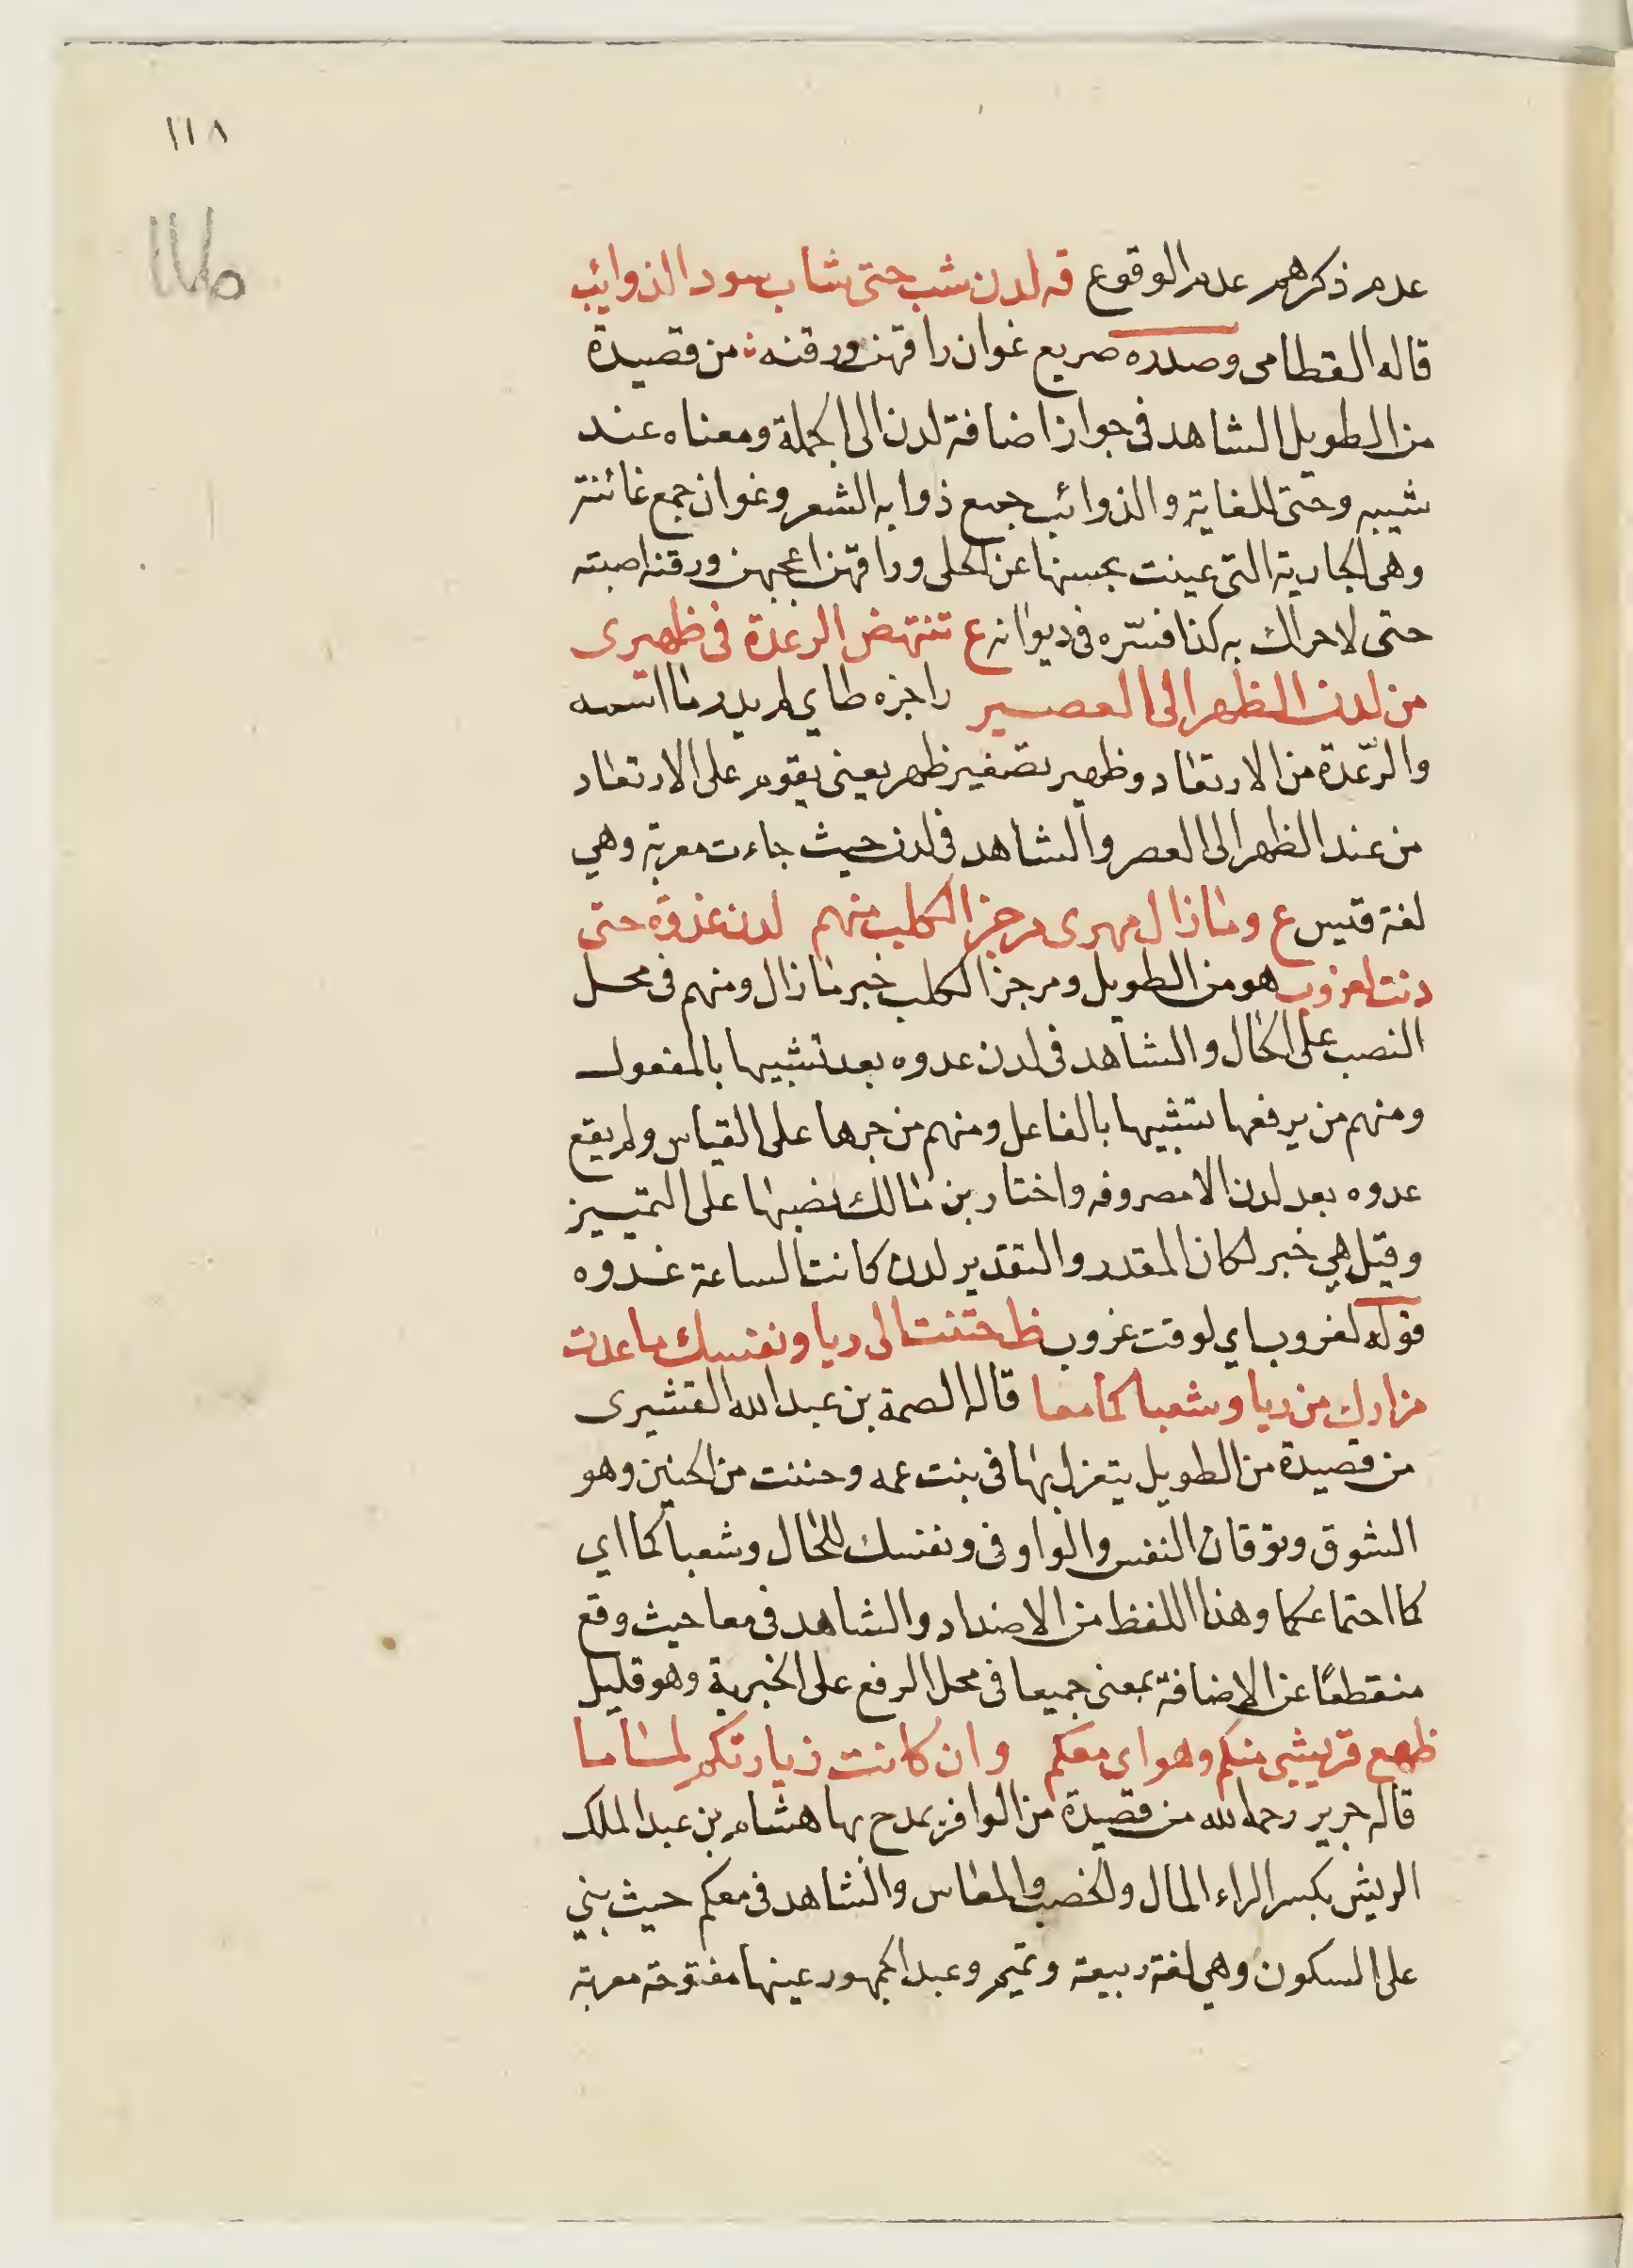 ١١٨
عدم ذكرهم عدم الوقوع قه لدن شب حتى شاب سود الذوائب
قاله القطامى وصدره صريع غوان راقهن ورقنه من قصيدة
من الطويل الشاهد فى جواز اضافة لدن الى الجملة ومعناه عند
شيبه وحتى للغاية والذوائب جمع ذوابه الشعر وغوان جمع غانية
وهى الجارية التى غنيت بحسنها عن الحلى وراقهن اعجبهن ورقنه اصبته
حتى لاحراك به كذا فسّره فى ديوانه ع تنتهض الرعدة فى ظهيرى
من لدن الظهر الى العصير راجزه طاي لم يدر ما اسمه
والرّعدة من الارتعاد وظهير تصغير ظهر يعنى يقوم على الارتعاد
من عند الظهر الى العصر والشاهد فى لدن حيث جاءت معربة وهي
لغة قيس ع وما زال مهرى مزجر الكلب منهم لدن غدوة حتى
دنت لغروب هو من الطويل ومزجر الكلب خبر ما زال ومنهم فى محل
النصب على الحال والشاهد فى لدن عدوه بعد تشبيها بالمفعول
ومنهم من يرفعها تشبيها بالفاعل ومنهم من جرها على القياس ولم يقع
عدوه بعد لدن الا مصروفه واختار بن مالك نصبها على التمييز
وقيل هي خبر لكان المقدر والتقدير لدن كانت الساعة غدوه
قوله لغروب اي لوقت غروب ظ حننت الى ريا ونفسك باعدت
مزارك من ريا وشعباكما معا قاله الصمة بن عبد الله القشيرى
من قصيدة من الطويل يتغزل بها فى بنت عمه وحننت من الحنين وهو
الشوق وتوقان النفس والواو فى ونفسك للحال وشعباكما اي
كما اجتماعكما وهذا اللفظ من الاضداد والشاهد فى معا حيث وقع
منقطعًا عن الاضافة بمعنى جميعا فى محل الرفع على الخبرية وهو قليل
ظهع فريشى منكم وهواى معكم وان كانت زيارتكم لماما
قاله جرير رحمه الله من قصيدة من الوافر يمدح بها هشام بن عبد الملك
الريش بكسر الراء المال والخصب والمعاش والشاهد فى معكم حيث بني
على السكون وهي لغة ربيعة وتميم وعبد الجمهور عينها مفتوحة معربة